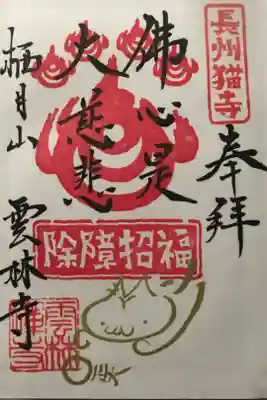 長州猫寺
奉拝
佛心是
大慈悲
除障招福
栖月山
雲林寺